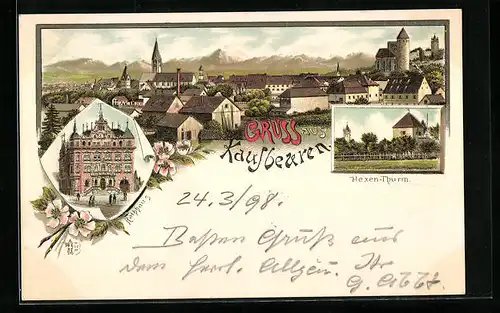 GRUSS aus
Kaufbeuren.
Rathaus
Hexen-Thurm.
24.3/98.
Besten Gruß aus
dem herrl. Allgäu. Ihr
G.